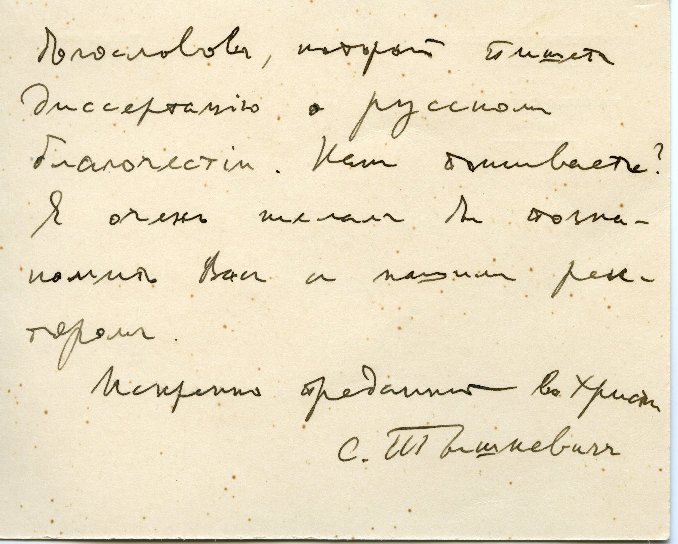 богослововъ, который пишетъ
диссертацію о русскомъ
благочестіи. Какъ поживаете?
Я очень желалъ бы позна-
комить Васъ съ нашимъ рек-
торомъ.
Искренно преданный во Христѣ
С. Тышкевичъ